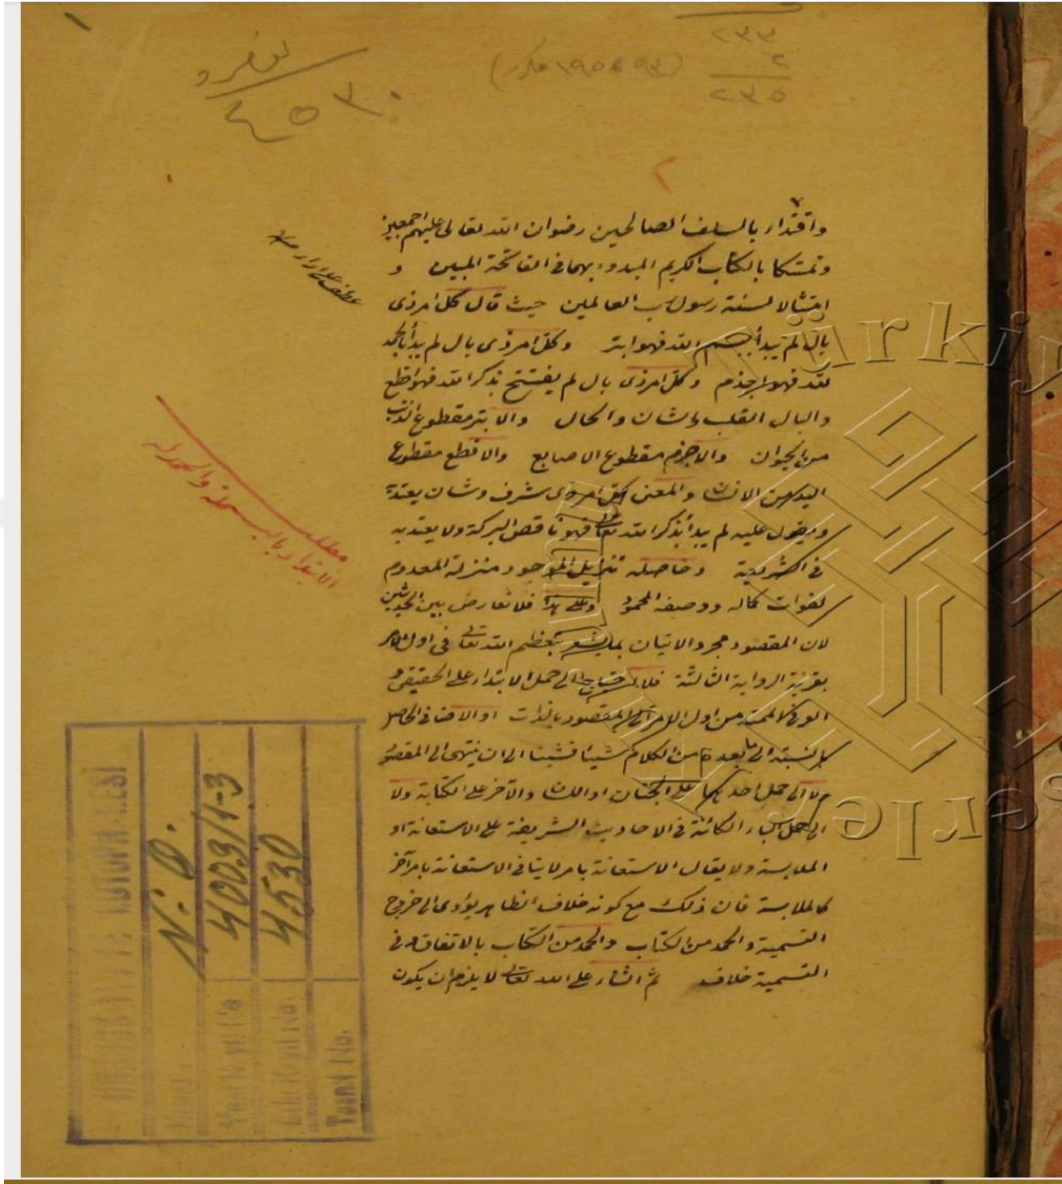 ٢٣٣
٢
٢٣٥
٤٥٣٠
٢
واقتداء بالسلف الصالحين رضوان الله تعالى عليهم اجمعين
وتمسكا بالكتاب الكريم المبدوء بهما في الفاتحة المبين و
امتثالا لسنة رسول رب العالمين حيث قال كل امر ذى
بال لم يبدأ ببسم الله فهو ابتر وكل امر ذى بال لم يبدأ بالحمد
لله فهو اجذم وكل امر ذى بال لم يفتتح بذكر الله فهو اقطع
والبال القلب والشان والحال والابتر مقطوع الذنب
من الحيوان والاجذم مقطوع الاصابع والاقطع مقطوع
اليد من الانسان والمعنى كل امر ذى شرف وشان يعتد به
ويعول عليه لم يبدأ بذكر الله تعالى فهو ناقص البركة ولا يعتد به
فى الشريعة وحاصله تنزيل الموجود منزلة المعدوم
لفوات كماله ووصفه المحمود وعلى هذا فلا تعارض بين الحديثين
لان المقصود مجرد الاتيان بما يشعر بتعظيم الله تعالى فى اول الامر
بقرينة الرواية الثالثة فلا يحتاج الى حمل الابتداء على الحقيقى و
العرفى الممتد من اول الامر الى المقصود بالذات او الاضافى الحاصل
بالنسبة الى ما بعده من الكلام شيئا فشيئا الى ان ينتهى الى المقصود
ولا الى حمل احدهما على الجنان او اللسان والآخر على الكتابة ولا
الى حمل الباء الكائنة فى الاحاديث الشريفة على الاستعانة او
الملابسة ولا يقال الاستعانة بامر لا ينافى الاستعانة بامر آخر
كالملابسة فان ذلك مع كونه خلاف الظاهر يؤدى الى خروج
التسمية والحمد من الكتاب والحمد من الكتاب بالاتفاق وفى
التسمية خلاف ثم الثناء على الله تعالى لا يلزم ان يكون
مطلب
الابتداء بالبسملة والحمدلة
N. O.
4003/1-3
4530
Yeni Kayıt No
Eski Kayıt No.
Tasnif No.
Türkiye
Eserler